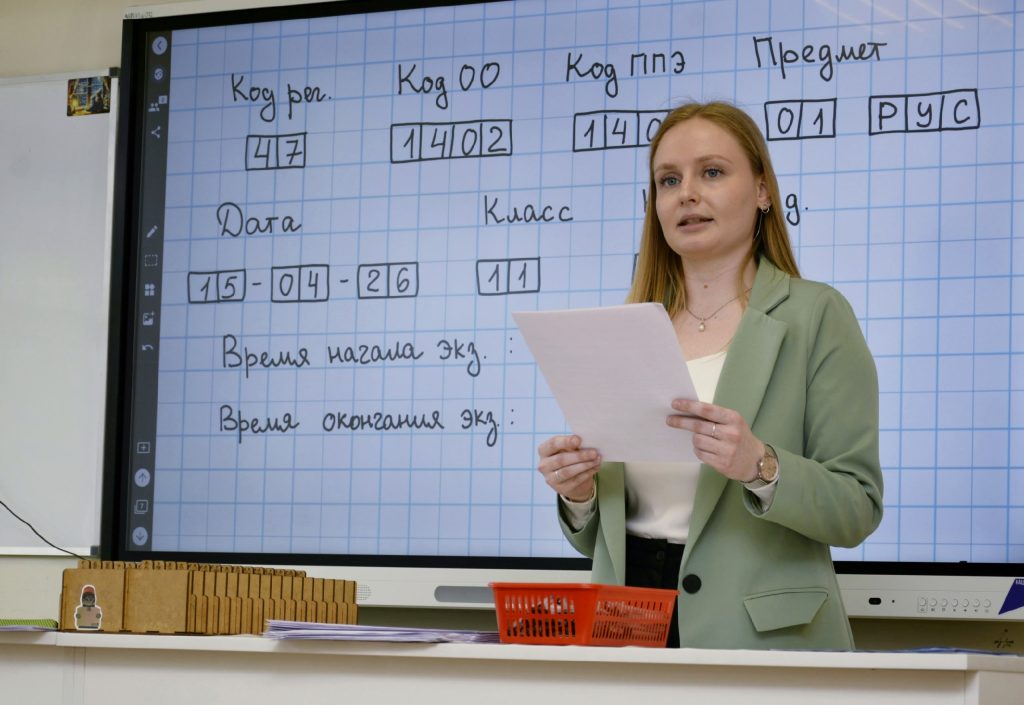 Код рег. Код ОО Код ППЭ Предмет
47 1402 140 01 РУС
Дата Класс
15-04-26 11
Время начала экз. :
Время окончания экз. :